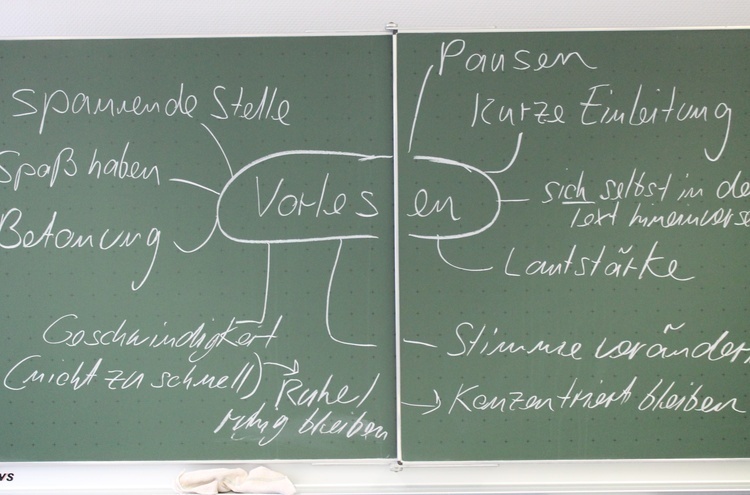 Pausen
Spannende Stelle
Kurze Einleitung
Spaß haben
Vorlesen
sich selbst in de
Text hineinverse
Betonung
Lautstärke
Geschwindigkeit
(nicht zu schnell)
Stimme veränder
Ruhe/
ruhig bleiben
Konzentriert bleiben
ws